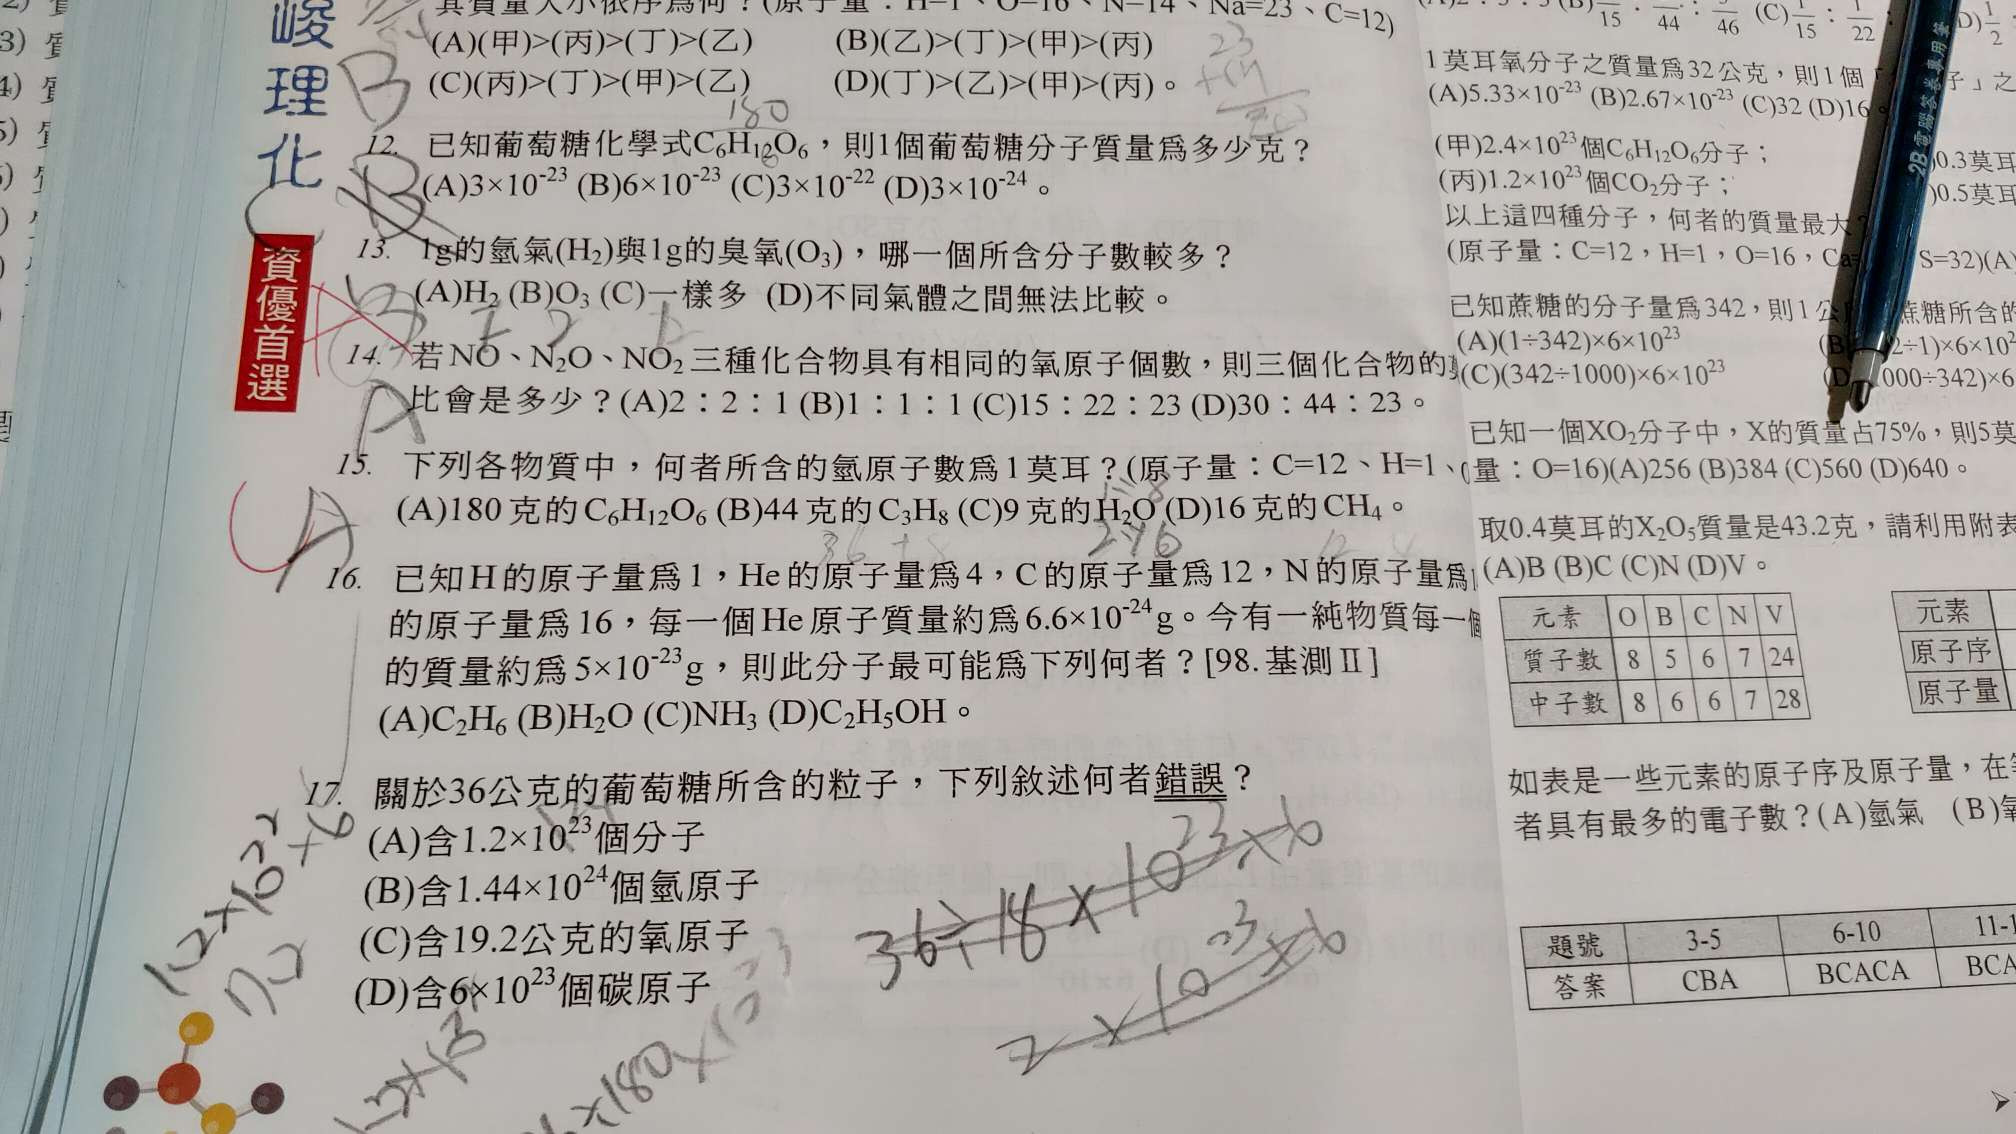 峻
理
化
資優首選
其質量大小依序為何？(原子量：H=1、O=16、N=14、Na=23、C=12)
(A)(甲)>(丙)>(丁)>(乙) (B)(乙)>(丁)>(甲)>(丙)
(C)(丙)>(丁)>(甲)>(乙) (D)(丁)>(乙)>(甲)>(丙)。
B
23
180
12. 已知葡萄糖化學式C₆H₁₂O₆，則1個葡萄糖分子質量為多少克？
(A)3×10⁻²³ (B)6×10⁻²³ (C)3×10⁻²² (D)3×10⁻²⁴。
B
C
13. 1g的氫氣(H₂)與1g的臭氧(O₃)，哪一個所含分子數較多？
(A)H₂ (B)O₃ (C)一樣多 (D)不同氣體之間無法比較。
A
14. 若NO、N₂O、NO₂三種化合物具有相同的氧原子個數，則三個化合物的
比會是多少？(A)2：2：1 (B)1：1：1 (C)15：22：23 (D)30：44：23。
A
15. 下列各物質中，何者所含的氫原子數為1莫耳？(原子量：C=12、H=1、
(A)180克的C₆H₁₂O₆ (B)44克的C₃H₈ (C)9克的H₂O (D)16克的CH₄。
C
A
36+8
16. 已知H的原子量為1，He的原子量為4，C的原子量為12，N的原子量為
的原子量為16，每一個He原子質量約為6.6×10⁻²⁴g。今有一純物質每一個
的質量約為5×10⁻²³g，則此分子最可能為下列何者？[98.基測Ⅱ]
(A)C₂H₆ (B)H₂O (C)NH₃ (D)C₂H₅OH。
17. 關於36公克的葡萄糖所含的粒子，下列敘述何者錯誤？
(A)含1.2×10²³個分子
(B)含1.44×10²⁴個氫原子
(C)含19.2公克的氧原子
(D)含6×10²³個碳原子
36÷18×10²³×6
2×10²³×6
72
1莫耳氧分子之質量為32公克，則1個「
子」之
(A)5.33×10⁻²³ (B)2.67×10⁻²³ (C)32 (D)16。
(甲)2.4×10²³個C₆H₁₂O₆分子；
)0.3莫耳
(丙)1.2×10²³個CO₂分子；
)0.5莫耳
以上這四種分子，何者的質量最大？
(原子量：C=12，H=1，O=16，Ca
S=32)(A)
已知蔗糖的分子量為342，則1公
蔗糖所含的
(A)(1÷342)×6×10²³
(C)(342÷1000)×6×10²³
000÷342)×6
已知一個XO₂分子中，X的質量占75%，則5莫
量：O=16)(A)256 (B)384 (C)560 (D)640。
取0.4莫耳的X₂O₅質量是43.2克，請利用附表
(A)B (B)C (C)N (D)V。
元素 O B C N V
質子數 8 5 6 7 24
中子數 8 6 6 7 28
元素
原子序
原子量
如表是一些元素的原子序及原子量，在
者具有最多的電子數？(A)氫氣 (B)氧
題號 3-5 6-10 11-1
答案 CBA BCACA BCA
2B 電腦答卷專用筆